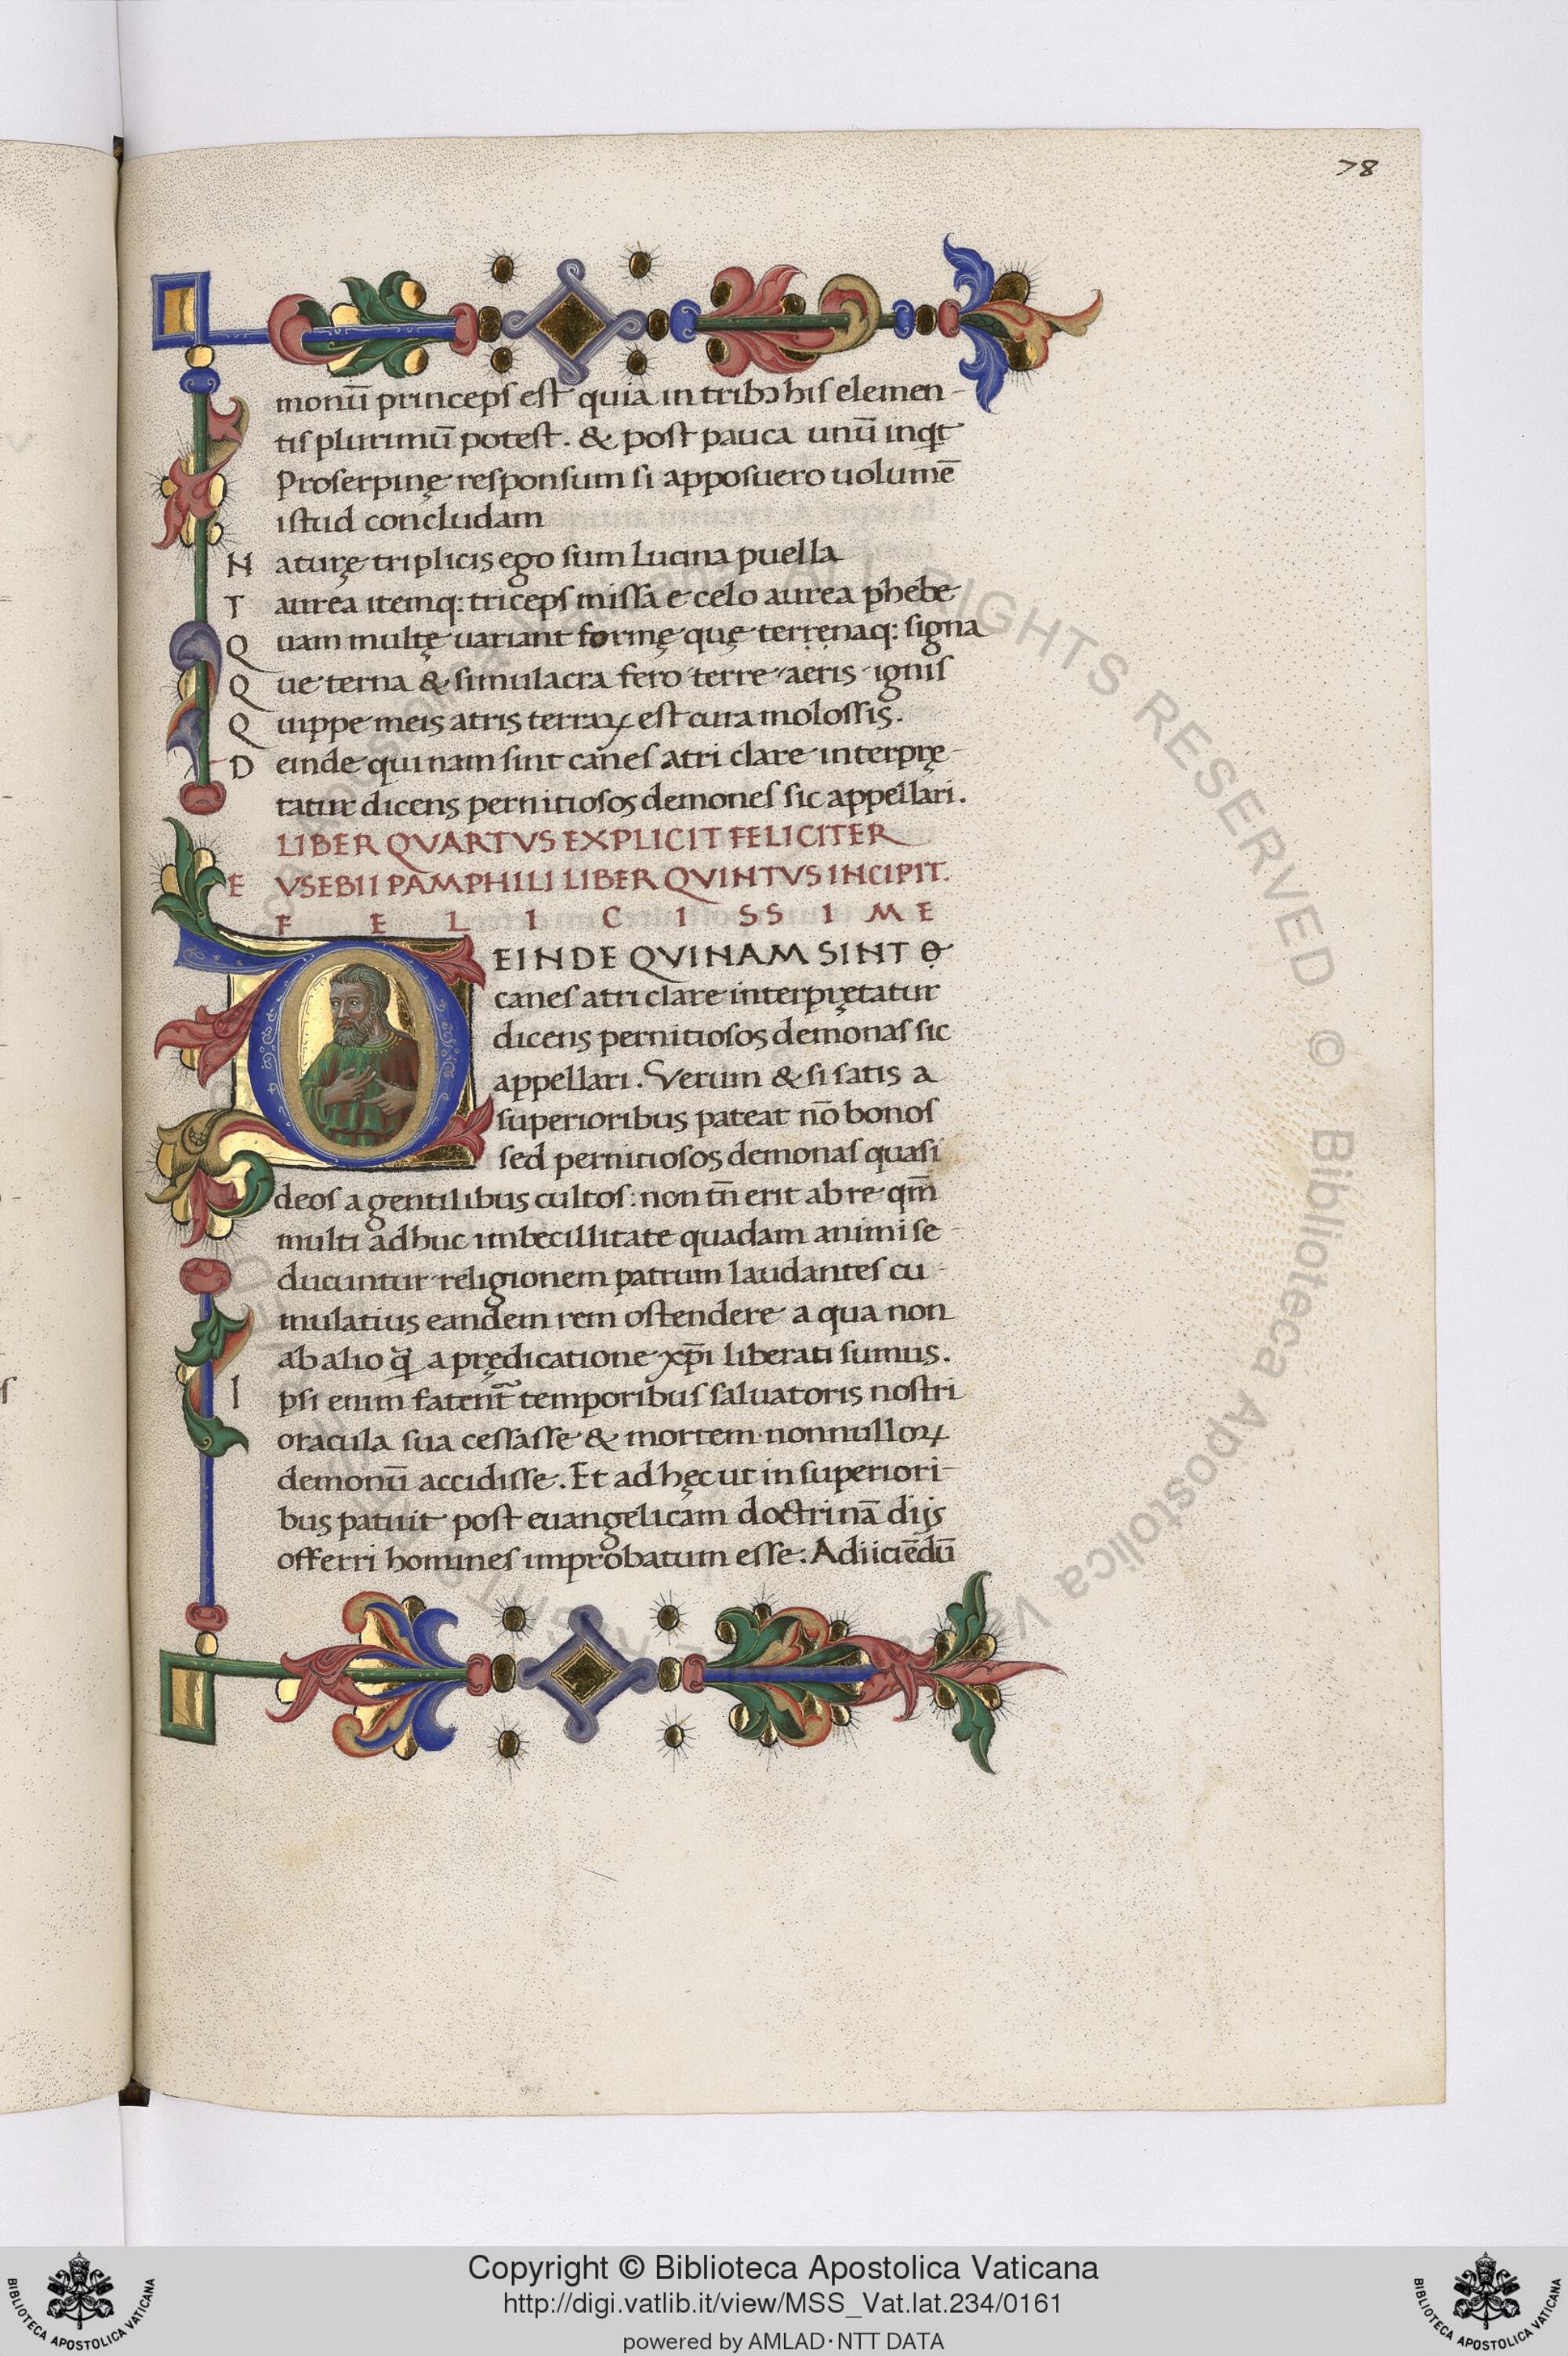 78
monū princeps est quia in tribꝯ his elemen-
tis plurimū potest. & post pauca unū inqͥt
Proserpinę responsum si apposuero uolumē
istud concludam
N aturę triplicis ego sum Lucina puella
T aurea itemq: triceps missa e celo aurea phebe
Q uam multę uariant formę quę terrenaq: signa
Q ue terna & simulacra fero terre aeris ignis
Q uippe meis atris terraꝝ est cura molossis.
D einde qui nam sint canes atri clare interprę-
tatur dicens pernitiosos demones sic appellari.
LIBER QVARTVS EXPLICIT FELICITER
E VSEBII PAMPHILI LIBER QVINTVS INCIPIT.
F E L I C I SS I M E
D EINDE QVINAM SINT
canes atri clare interprętatur
dicens pernitiosos demonas sic
appellari. Verum & si satis a
superioribus pateat nō bonos
sed pernitiosos demonas quasi
deos a gentilibus cultos: non tn̄ erit ab re qm̄
multi adhuc imbecillitate quadam animi se-
ducuntur religionem patrum laudantes cu-
mulatius eandem rem ostendere a qua non
ab alio ꝙ̃ a prędicatione xp̄i liberati sumus.
I psi enim fatent᷑ temporibus saluatoris nostri
oracula sua cessasse & mortem nonnulloꝝ
demonū accidisse. Et ad hęc ut in superiori-
bus patuit post euangelicam doctrinā dijs
offerri homines improbatum esse. Adiiciēdū
ALL RIGHTS RESERVED © Biblioteca Apostolica Vaticana
Copyright © Biblioteca Apostolica Vaticana
http://digi.vatlib.it/view/MSS_Vat.lat.234/0161
powered by AMLAD·NTT DATA
BIBLIOTECA APOSTOLICA VATICANA
BIBLIOTECA APOSTOLICA VATICANA